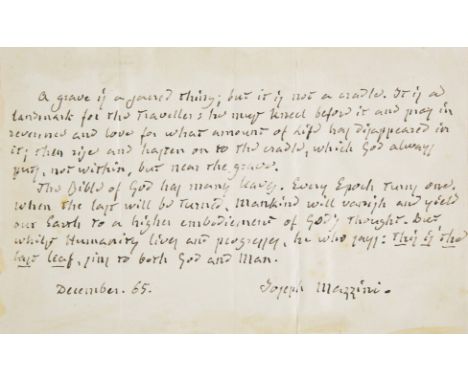 A grave is a sacred thing; but it is not a cradle. It is a
landmark for the Traveller: he must kneel before it and pray in
reverence and love for what amount of Life has disappeared in
it; then rise and hasten on to the cradle, which God always
puts, not within, but near the grave.
The Bible of God has many leaves. Every Epoch turns one.
When the last will be turned, Mankind will vanish and yield
our Earth to a higher embodiment of God's thought. But
whilst Humanity lives and progresses, he who says: this is the
last leaf, sins to both God and Man.
December. 65.
Joseph Mazzini.